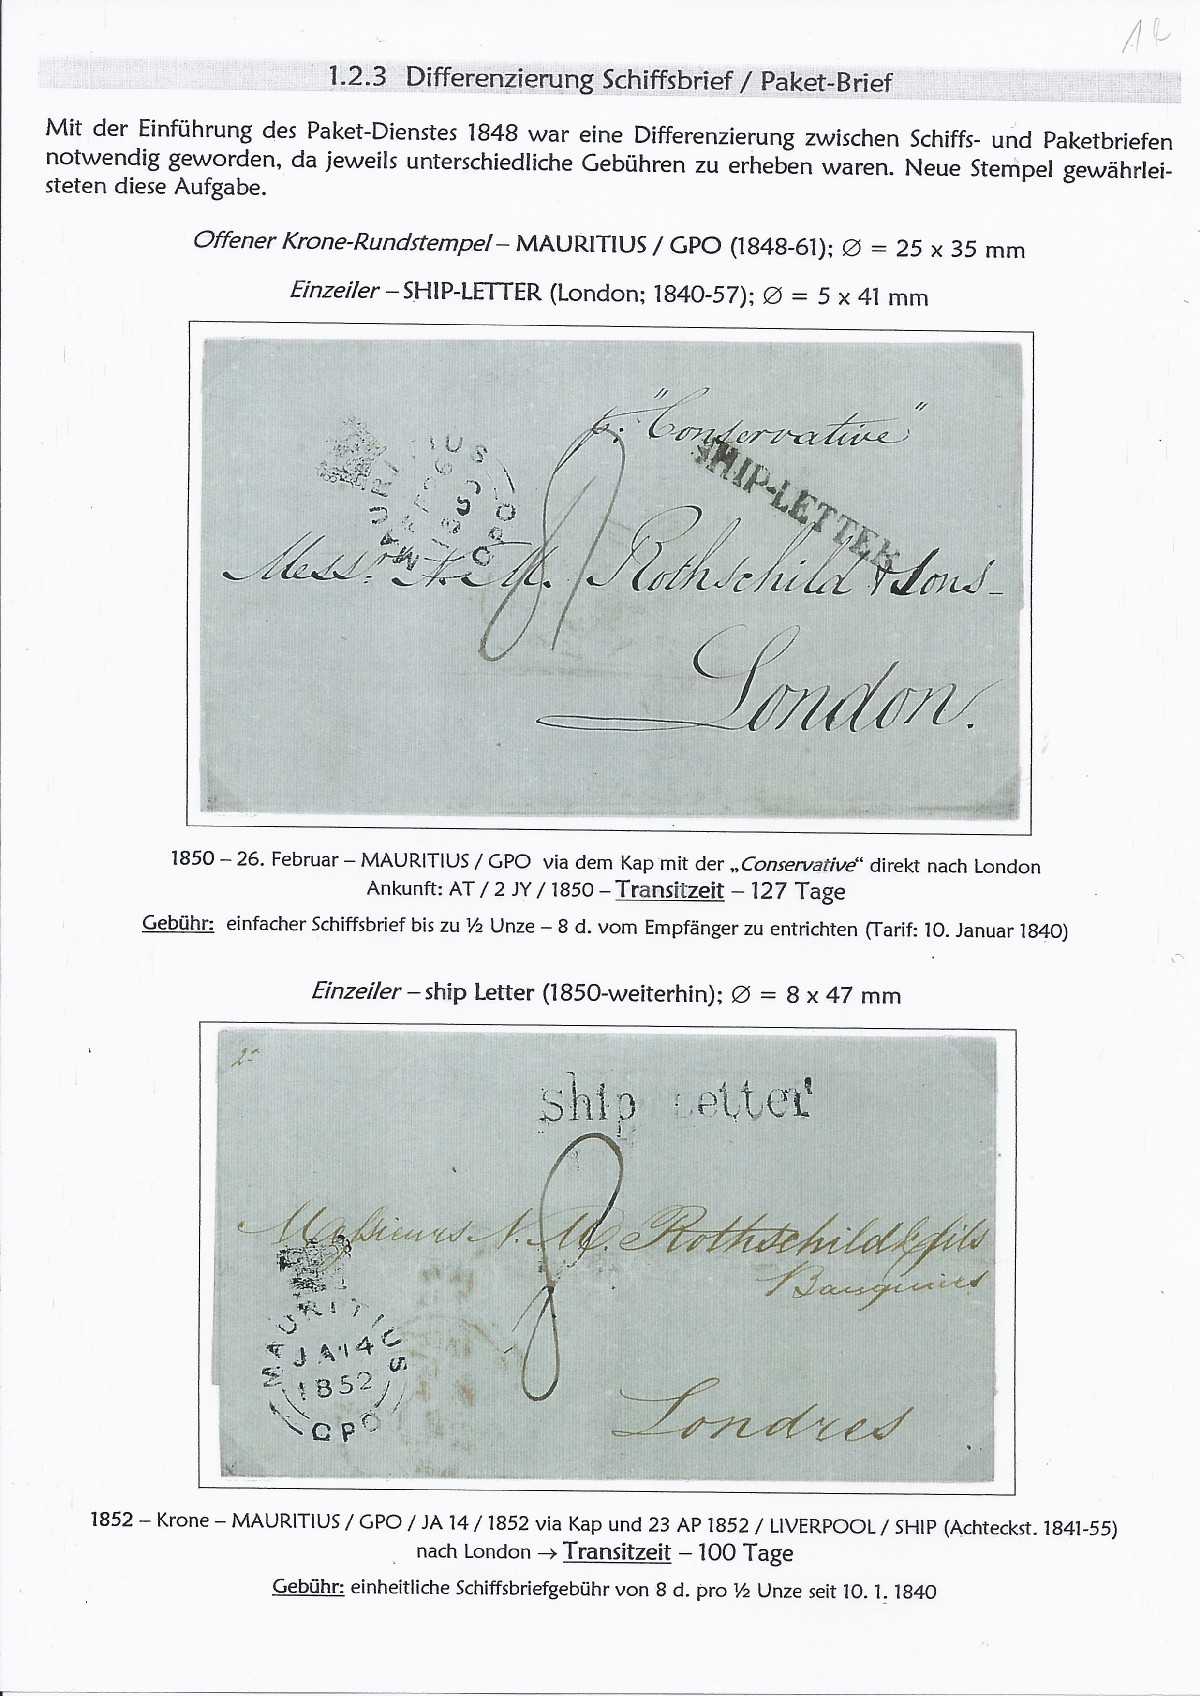 1.2.3 Differenzierung Schiffsbrief / Paket-Brief
Mit der Einführung des Paket-Dienstes 1848 war eine Differenzierung zwischen Schiffs- und Paketbriefen
notwendig geworden, da jeweils unterschiedliche Gebühren zu erheben waren. Neue Stempel gewährlei-
steten diese Aufgabe.
Offener Krone-Rundstempel – MAURITIUS / GPO (1848-61); Ø = 25 x 35 mm
Einzeiler – SHIP-LETTER (London; 1840-57); Ø = 5 x 41 mm
p. "Conservative"
SHIP-LETTER
MAURITIUS
FE 26
1850
GPO
8
Messrs. N. M. Rothschild & Sons
London.
1850 – 26. Februar – MAURITIUS / GPO via dem Kap mit der „Conservative“ direkt nach London
Ankunft: AT / 2 JY / 1850 – Transitzeit – 127 Tage
Gebühr: einfacher Schiffsbrief bis zu ½ Unze – 8 d. vom Empfänger zu entrichten (Tarif: 10. Januar 1840)
Einzeiler – ship Letter (1850-weiterhin); Ø = 8 x 47 mm
ship Letter
8
Messieurs N. M. Rothschild & fils
Banquiers
MAURITIUS
JA 14
1852
GPO
Londres
1852 – Krone – MAURITIUS / GPO / JA 14 / 1852 via Kap und 23 AP 1852 / LIVERPOOL / SHIP (Achteckst. 1841-55)
nach London → Transitzeit – 100 Tage
Gebühr: einheitliche Schiffsbriefgebühr von 8 d. pro ½ Unze seit 10. 1. 1840